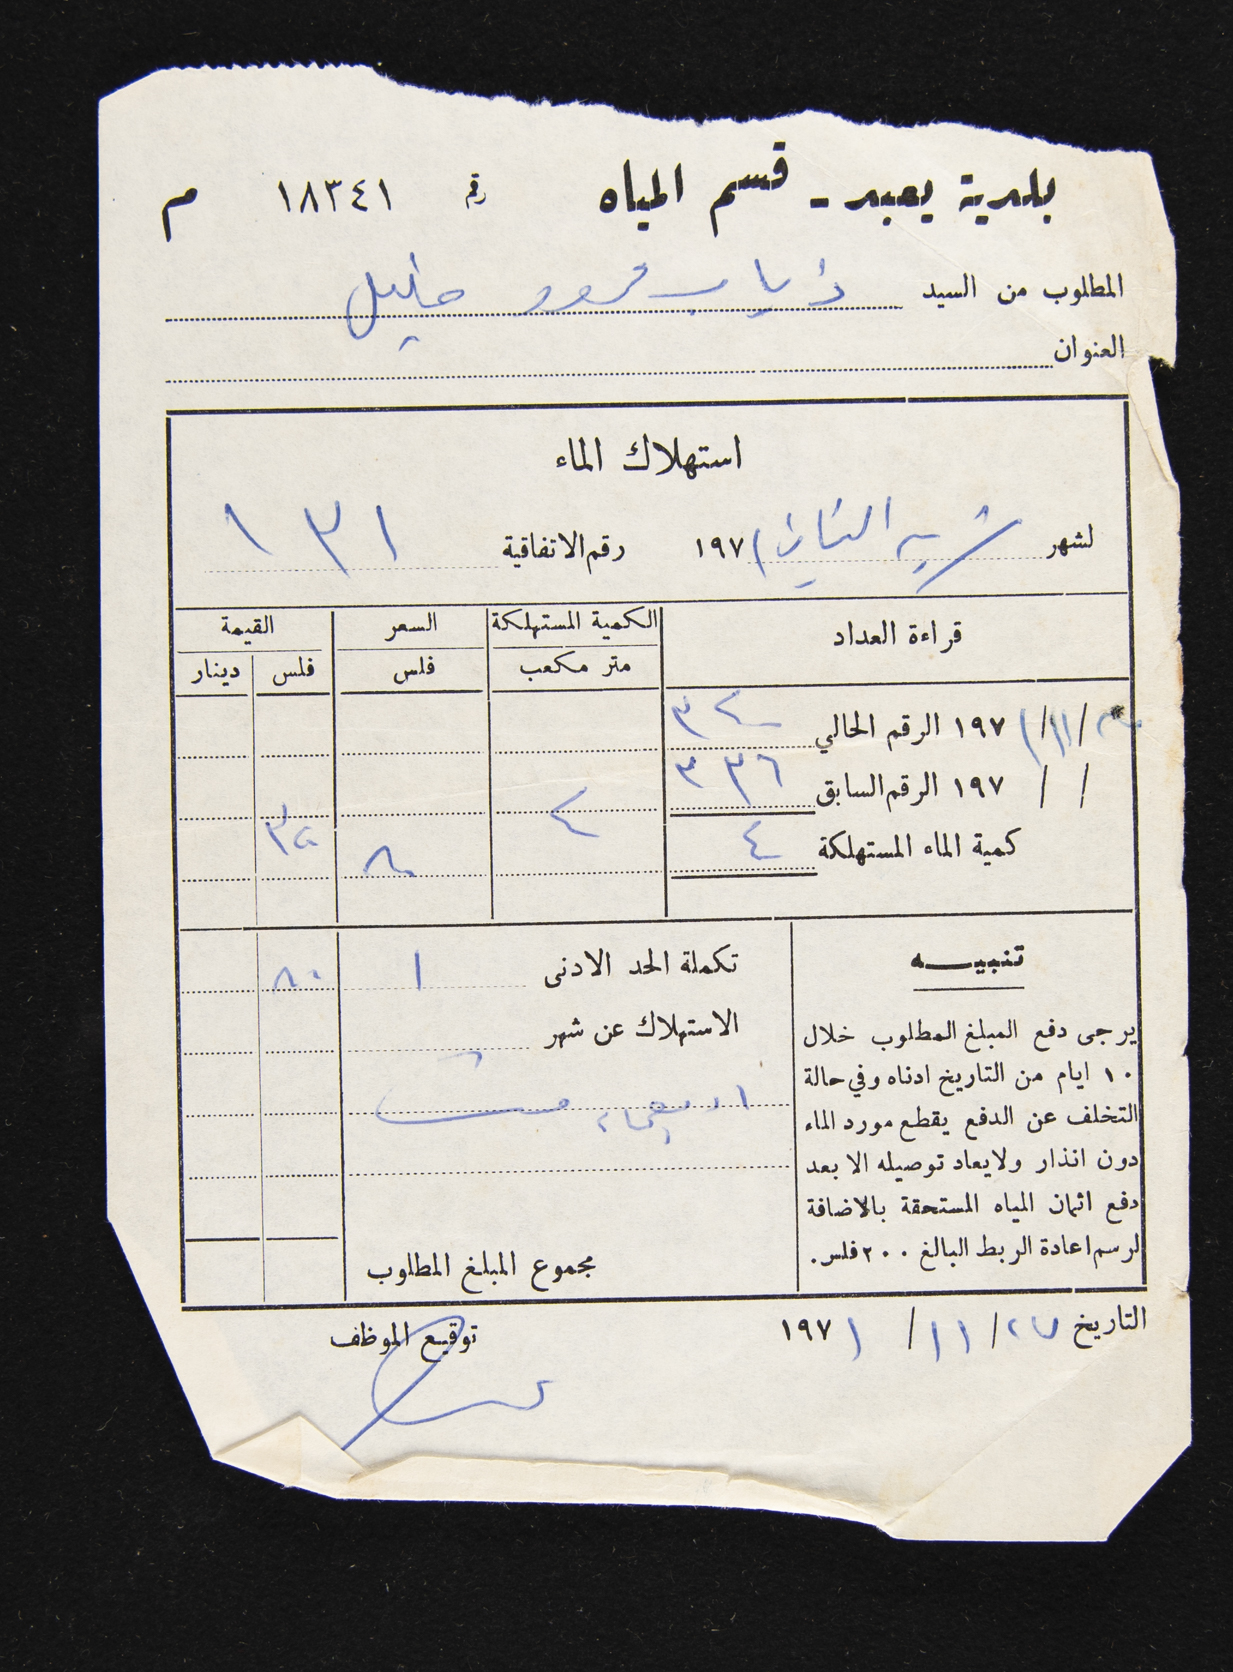 بلدية يعبد - قسم المياه رقم ١٨٣٤١ م
المطلوب من السيد ذياب محمود خليل
العنوان
استهلاك الماء
لشهر تشرين الثاني ١٩٧١ رقم الاتفاقية ١٣١
قراءة العداد الكمية المستهلكة السعر القيمة
متر مكعب فلس فلس دينار
/١١/ ١٩٧١ الرقم الحالي ٣٤٠
/ / ١٩٧ الرقم السابق ٣٣٦
كمية الماء المستهلكة ٤ ٤ ٨٠ ٣٢٠
تنبيه
يرجى دفع المبلغ المطلوب خلال
١٠ ايام من التاريخ ادناه وفي حالة
التخلف عن الدفع يقطع مورد الماء
دون انذار ولا يعاد توصيله الا بعد
دفع اثمان المياه المستحقة بالاضافة
لرسم اعادة الربط البالغ ٢٠٠ فلس.
تكملة الحد الادنى ١ ٨٠
الاستهلاك عن شهر
اربعماية فلس
مجموع المبلغ المطلوب
التاريخ ٢٧/ ١١/ ١٩٧١
توقيع الموظف